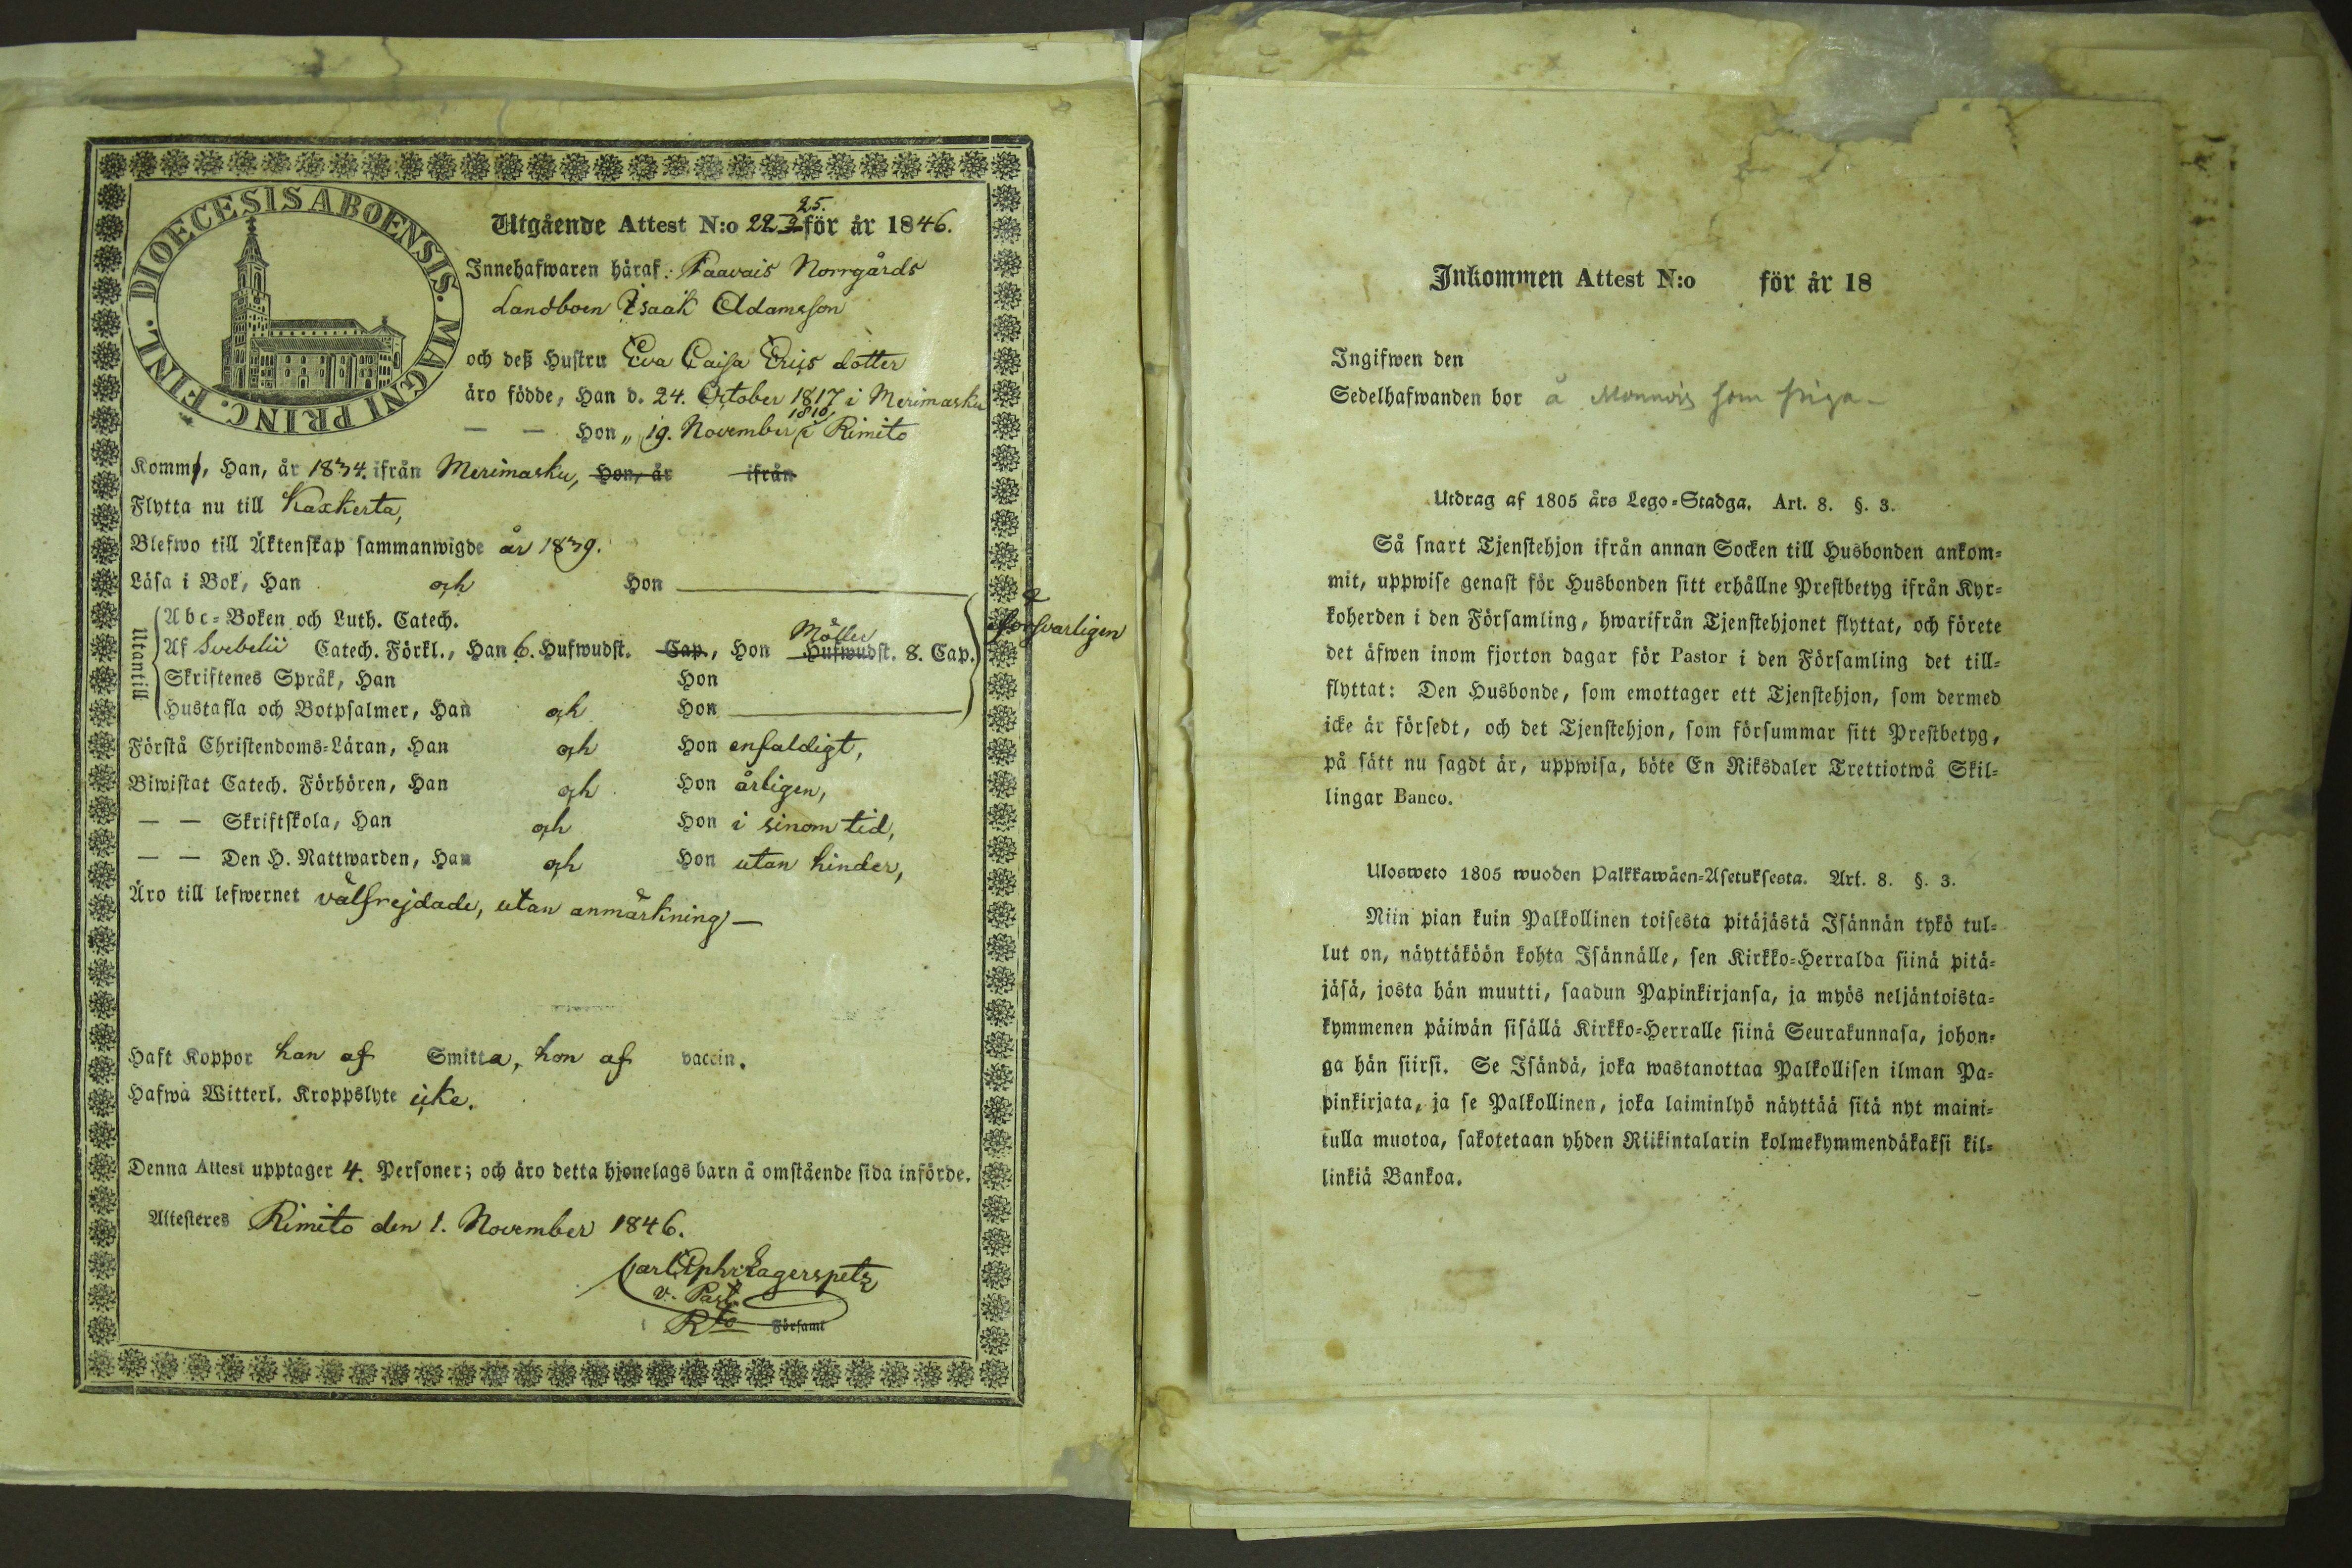 DIOECESIS ABOENSIS. MAGNI PRINC. FINL.
Utgående Attest N:o 22 25. för år 1846.
Innehafwaren häraf: Paavais Norrgårds
Landboen Isaak Adamsson
och deß Hustru Eva Caisa Erics dotter
äro födde, Han d. 24. October 1817 i Merimasku
— — Hon „ 19. November 1816 i Rimito
Komm, Han, år 1834. ifrån Merimasku, Hon, år ifrån
Flytta nu till Kaxkerta,
Blefwo till Äktenskap sammanwigde år 1839.
Läsa i Bok, Han och Hon
Utantill
Abc-Boken och Luth. Catech.
Af Svebelii Catech. Förkl., Han 6. Hufwudst. Cap., Hon Möller Hufwudst. 8. Cap.
försvarligen
Skriftenes Språk, Han Hon
Hustafla och Botpsalmer, Han och Hon
Förstå Christendoms-Läran, Han och Hon enfaldigt,
Biwistat Catech. Förhören, Han och Hon årligen,
— — Skriftskola, Han och Hon i sinom tid,
— — Den H. Nattwarden, Han och Hon utan hinder,
Äro till lefwernet välfrejdade, utan anmärkning —
Haft Koppor han af Smitta, hon af vaccin.
Hafwa Witterl. Kroppslyte icke.
Denna Attest upptager 4. Personer; och äro detta hjonelags barn å omstående sida införde.
Attesteres Rimito den 1. November 1846.
Carl Ephr Lagerspetz
v. Past.
i Rto Församl
Inkommen Attest N:o för år 18
Ingifwen den
Sedelhafwanden bor å Monnois som piga -
Utdrag af 1805 års Lego-Stadga. Art. 8. §. 3.
Så snart Tjenstehjon ifrån annan Socken till Husbonden ankom-
mit, uppwise genast för Husbonden sitt erhållne Prestbetyg ifrån Kyr-
koherden i den Församling, hwarifrån Tjenstehjonet flyttat, och förete
det äfwen inom fjorton dagar för Pastor i den Församling det till-
flyttat: Den Husbonde, som emottager ett Tjenstehjon, som dermed
icke är försedt, och det Tjenstehjon, som försummar sitt Prestbetyg,
på sätt nu sagdt är, uppwisa, böte En Riksdaler Trettiotwå Skil-
lingar Banco.
Ulosweto 1805 wuoden Palkkawäen-Asetuksesta. Art. 8. §. 3.
Niin pian kuin Palkollinen toisesta pitäjästä Isännän tykö tul-
lut on, näyttäköön kohta Isännälle, sen Kirkko-Herralda siinä pitä-
jäsä, josta hän muutti, saadun Papinkirjansa, ja myös neljäntoista-
kymmenen päiwän sisällä Kirkko-Herralle siinä Seurakunnasa, johon-
ga hän siirsi. Se Isändä, joka wastanottaa Palkollisen ilman Pa-
pinkirjata, ja se Palkollinen, joka laiminlyö näyttää sitä nyt maini-
tulla muotoa, sakotetaan yhden Riikintalarin kolmekymmendäkaksi kil-
linkiä Bankoa.